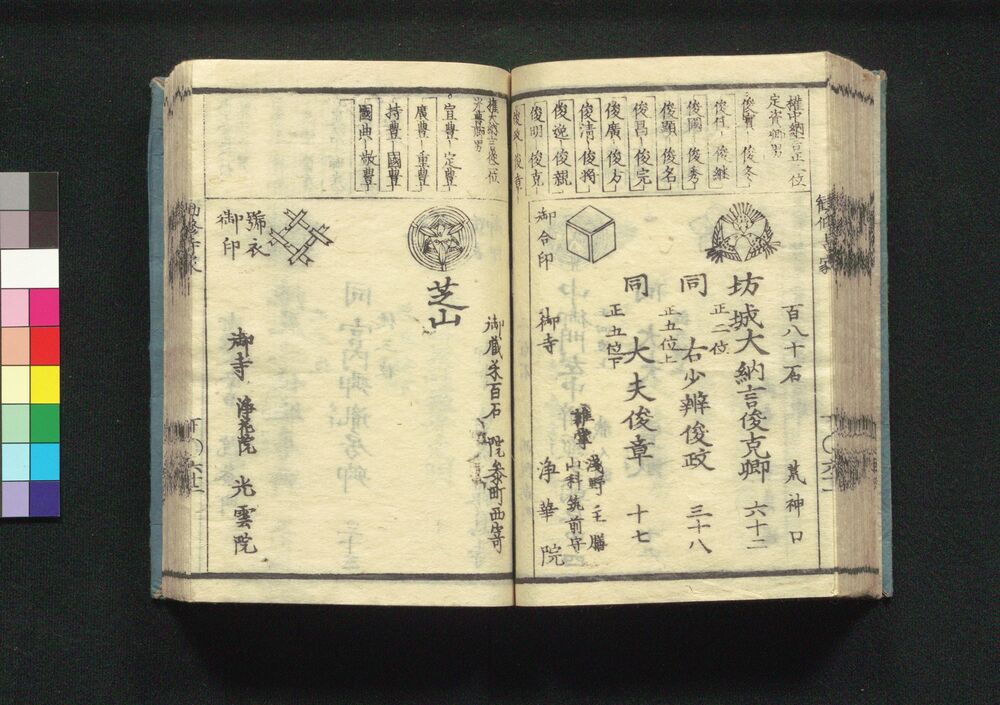 權中納言正二位
定資卿男
俊實 俊冬
俊任 俊継
俊國 俊秀
俊顯 俊名
俊昌 俊完
俊廣 俊方
俊清 俊將
俊逸 俊親
俊明 俊克
俊政 俊章
百八十石 荒神口
坊城大納言俊克卿 六十二
正二位
同 右少辨俊政 三十八
正五位上
同 大夫俊章 十七
正五位下
雜掌 淺野主膳
山科筑前守
御合印
御寺 浄華院
宣豊 定豊
廣豊 重豊
持豊 國豊
國典 敬豊
御蔵米百石 院参町西
芝山
號衣
御印
御寺 浄花院 光雲院